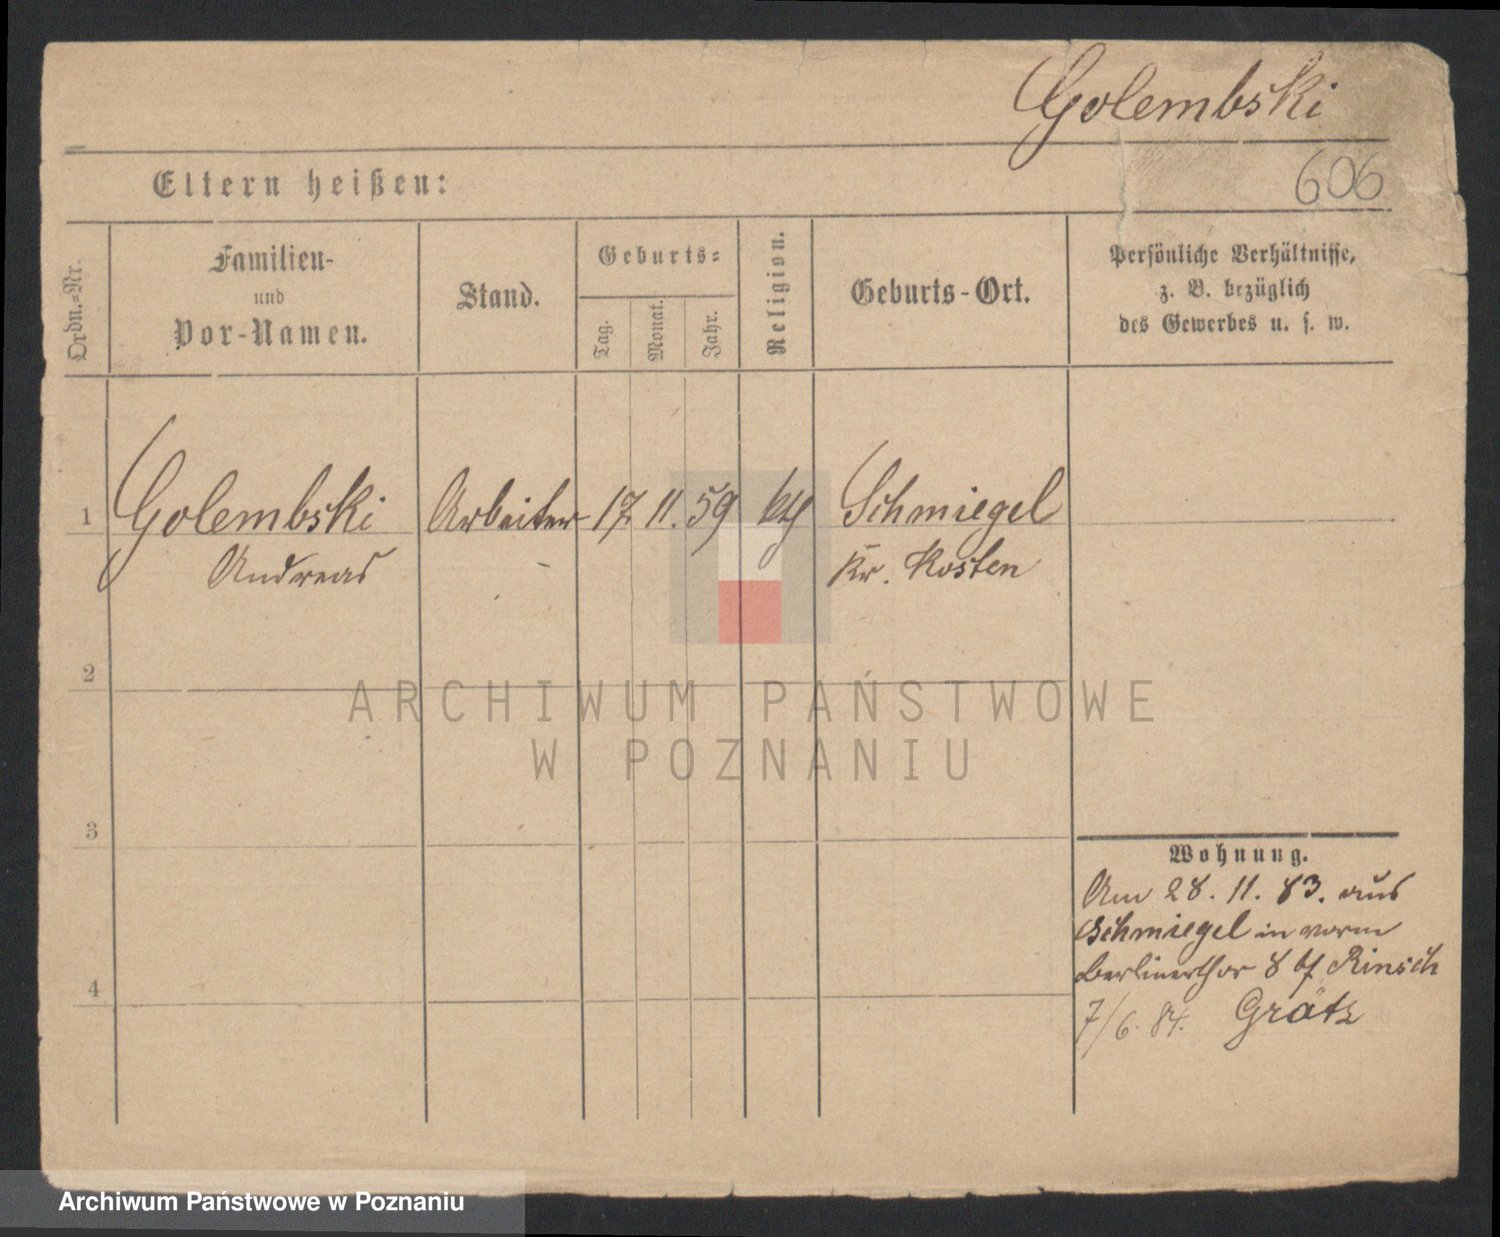 Golembski
606
Eltern heißen:
Ordn.-Nr.
Familien-
und
Vor-Namen.
Stand.
Geburts-
Tag.
Monat.
Jahr.
Religion.
Geburts-Ort.
Persönliche Verhältnisse,
z. B. bezüglich
des Gewerbes u. s. w.
1 Golembski Arbeiter 17. 11. 59 kth Schmiegel
Andreas Kr. Kosten
2
ARCHIWUM PAŃSTWOWE
W POZNANIU
3
Wohnung.
Am 28. 11. 83. aus
Schmiegel in vorm
Berlinerthor 8 bf Rinsch
4
7/6. 84. Grätz
Archiwum Państwowe w Poznaniu